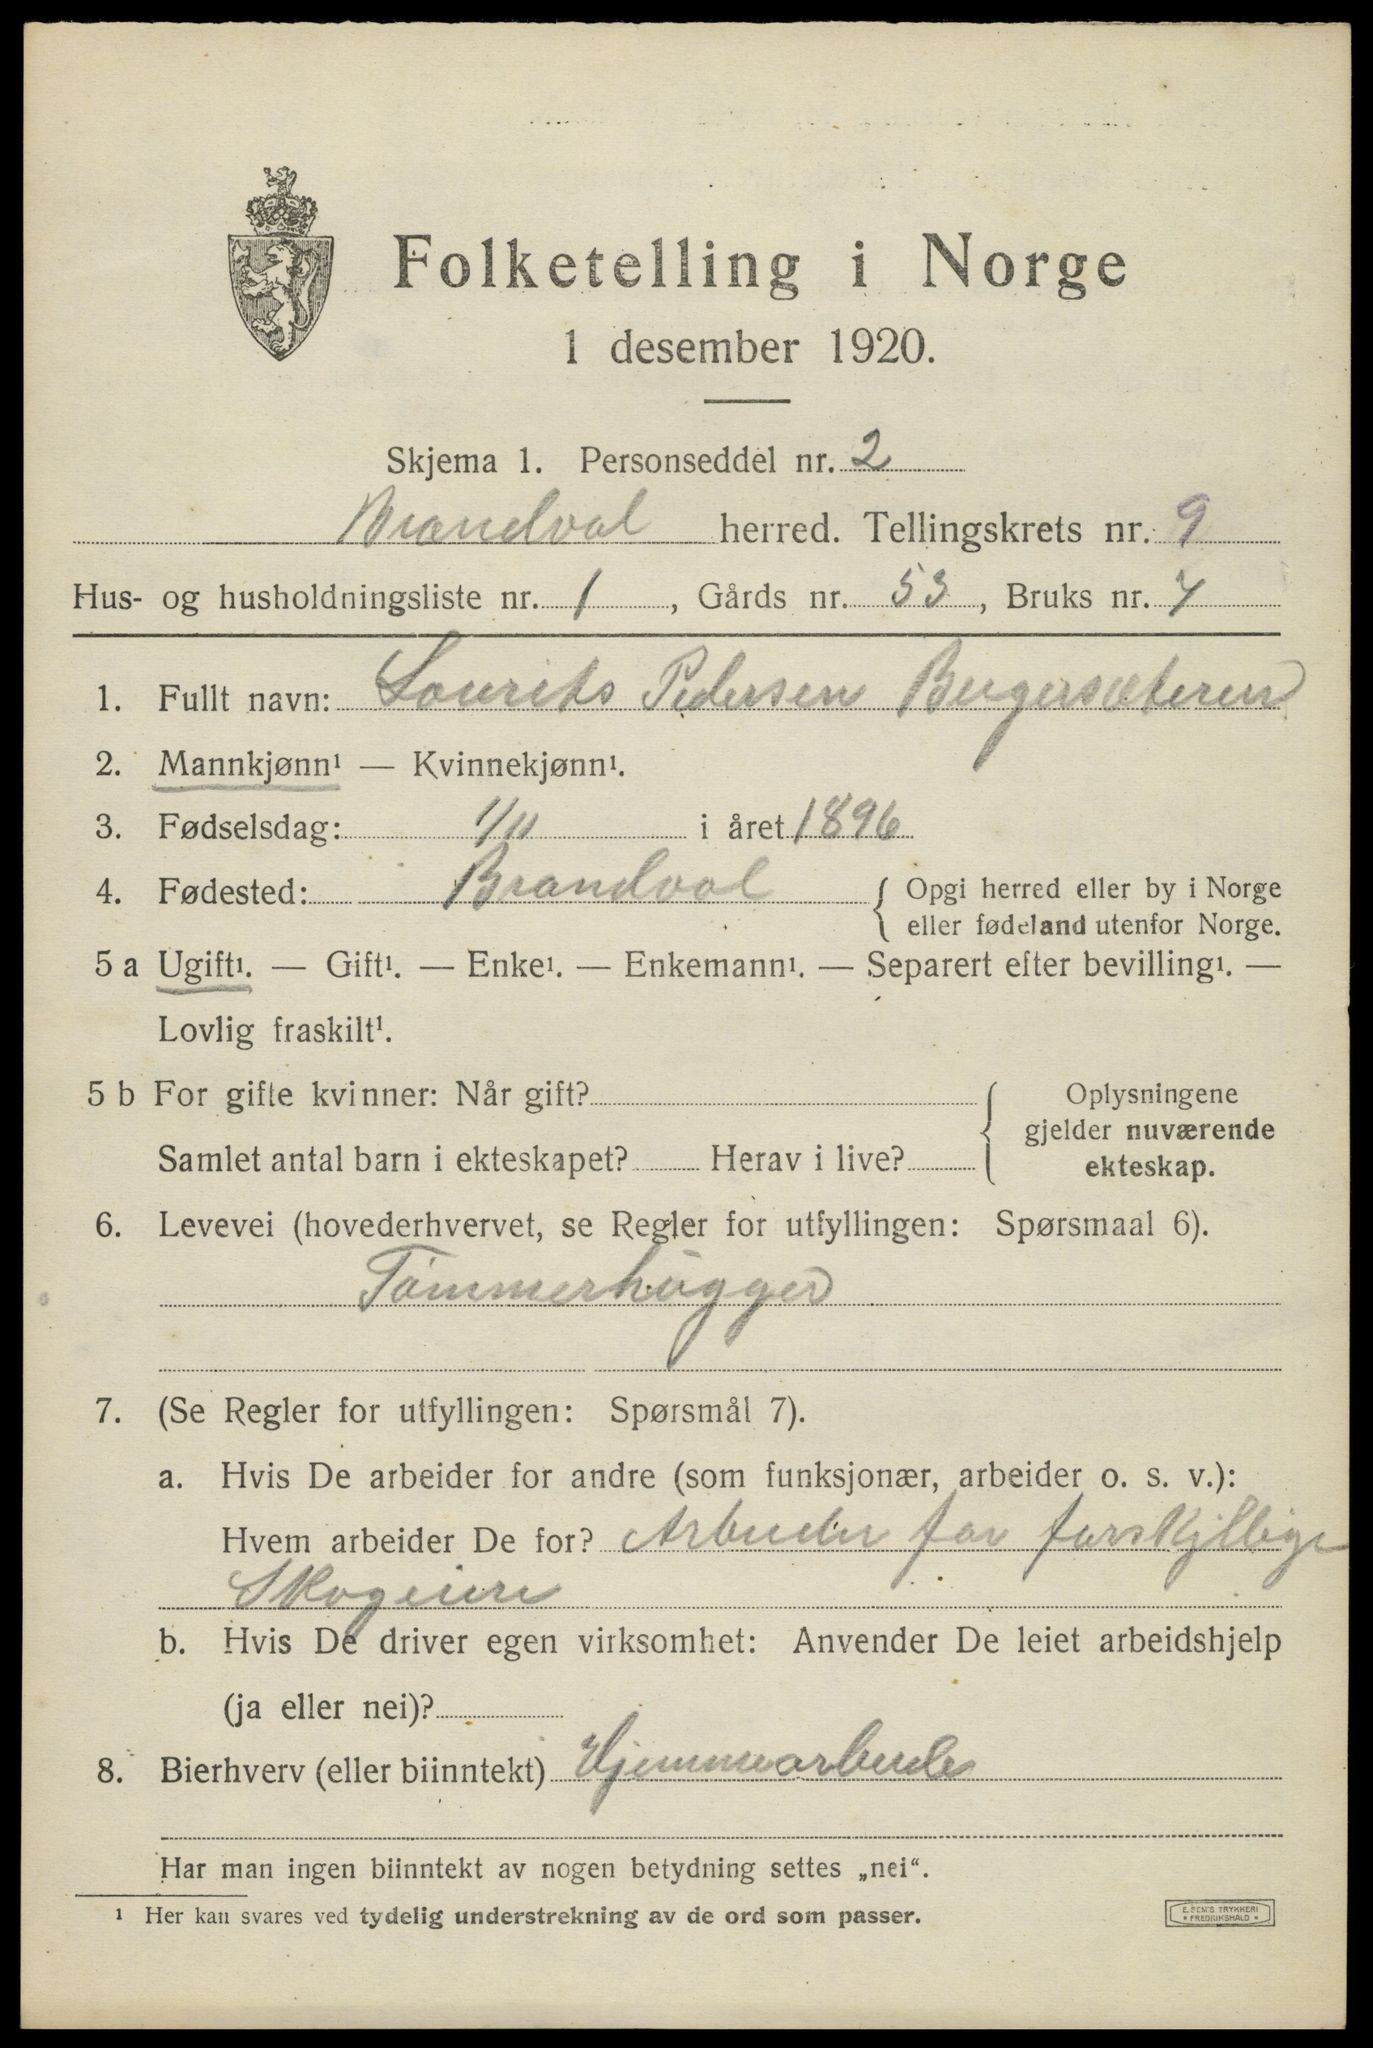 Folketelling i Norge
1 desember 1920.
Skjema 1. Personseddel nr. 2
Brandval herred. Tellingskrets nr. 9
Hus- og husholdningsliste nr. 1, Gårds nr. 53, Bruks nr. 7
1. Fullt navn: Laurits Pedersen Bergersæteren
2. Mannkjønn¹ — Kvinnekjønn¹.
3. Fødselsdag: 1/11 i året 1896
4. Fødested: Brandval { Opgi herred eller by i Norge
eller fødeland utenfor Norge.
5 a Ugift¹. — Gift¹. — Enke¹. — Enkemann¹. — Separert efter bevilling¹. —
Lovlig fraskilt¹.
5 b For gifte kvinner: Når gift? { Oplysningene
gjelder nuværende
Samlet antal barn i ekteskapet? Herav i live? ekteskap.
6. Levevei (hovederhvervet, se Regler for utfyllingen: Spørsmaal 6).
Tømmerhugger
7. (Se Regler for utfyllingen: Spørsmål 7).
a. Hvis De arbeider for andre (som funksjonær, arbeider o. s. v.):
Hvem arbeider De for? Arbeider for forskjllige
Skogeiere
b. Hvis De driver egen virksomhet: Anvender De leiet arbeidshjelp
(ja eller nei)?
8. Bierhverv (eller biinntekt) Hjemmearbeide
Har man ingen biinntekt av nogen betydning settes „nei“.
¹ Her kan svares ved tydelig understrekning av de ord som passer.
E. SEM'S TRYKKERI
* FREDRIKSHALD *